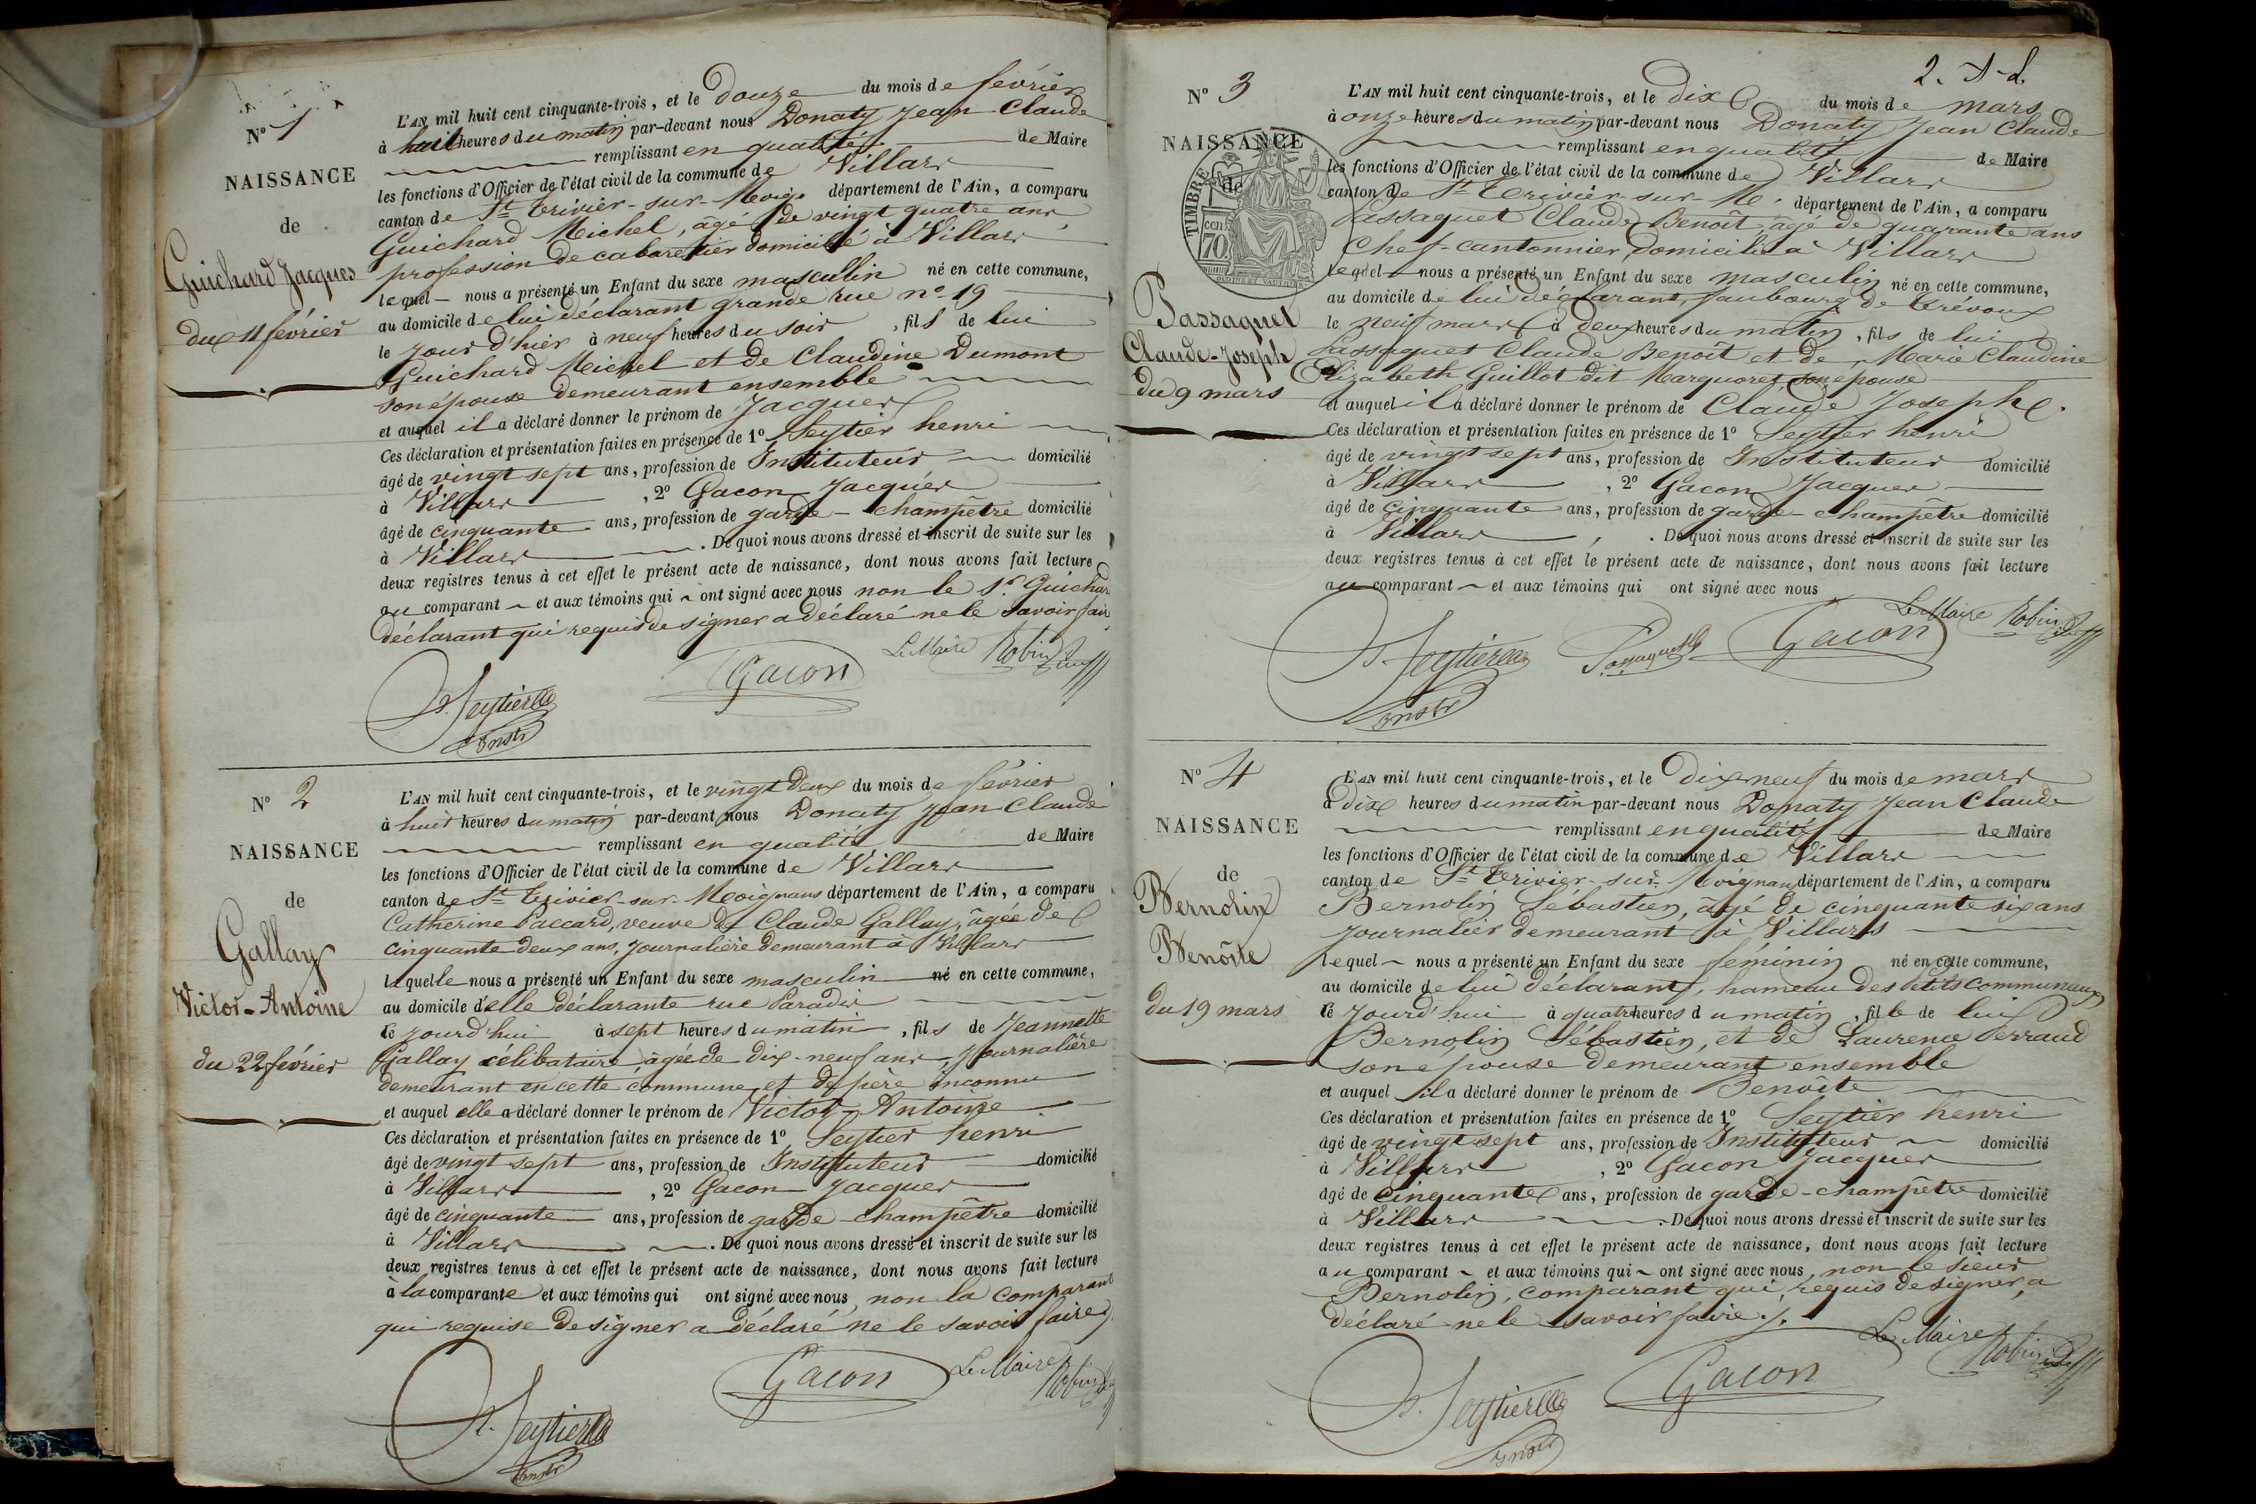 N° 1
NAISSANCE
de
Guichard Jacques
du 11 février
L'AN mil huit cent cinquante-trois, et le douze du mois de février
à huit heures du matin par-devant nous Donaty Jean Claude
remplissant en qualité de Maire
les fonctions d'Officier de l'état civil de la commune de Villars
canton de St Trivier-sur-Moig. département de l'Ain, a comparu
Guichard Michel, âgé de vingt quatre ans,
profession de cabaretier domicilié à Villars
lequel nous a présenté un Enfant du sexe masculin né en cette commune,
au domicile de lui déclarant grande rue n° 19
le jour d'hier à neuf heures du soir, fils de lui
Guichard Michel et de Claudine Dumont
son épouse demeurant ensemble
et auquel il a déclaré donner le prénom de Jacques
Ces déclaration et présentation faites en présence de 1° Seytier henri
âgé de vingt sept ans, profession de Instituteur domicilié
à Villars, 2° Gacon Jacques
âgé de cinquante ans, profession de garde-champêtre domicilié
à Villars. De quoi nous avons dressé et inscrit de suite sur les
deux registres tenus à cet effet le présent acte de naissance, dont nous avons fait lecture
au comparant et aux témoins qui ont signé avec nous non le Sr. Guichard
déclarant qui requis de signer a déclaré ne le savoir faire
Le Maire Robin
Gacon
H. Seytier
Instr
N° 2
NAISSANCE
de
Gallay
Victor-Antoine
du 22 février
L'AN mil huit cent cinquante-trois, et le vingt deux du mois de février
à huit heures du matin par-devant nous Donaty Jean Claude
remplissant en qualité de Maire
les fonctions d'Officier de l'état civil de la commune de Villars
canton de St Trivier-sur-Moignans département de l'Ain, a comparu
Catherine Paccard, veuve de Claude Gallay, âgée de
cinquante deux ans, journalière demeurant à Villars
laquelle nous a présenté un Enfant du sexe masculin né en cette commune,
au domicile d'elle déclarante rue Paradis
le jourd'hui à sept heures du matin, fils de Jeannette
Gallay célibataire, âgée de dix-neuf ans, journalière
demeurant en cette commune et de père inconnu
et auquel elle a déclaré donner le prénom de Victor-Antoine
Ces déclaration et présentation faites en présence de 1° Seytier henri
âgé de vingt sept ans, profession de Instituteur domicilié
à Villars, 2° Gacon Jacques
âgé de cinquante ans, profession de garde-champêtre domicilié
à Villars. De quoi nous avons dressé et inscrit de suite sur les
deux registres tenus à cet effet le présent acte de naissance, dont nous avons fait lecture
à la comparante et aux témoins qui ont signé avec nous, non la comparant
qui requise de signer a déclaré ne le savoir faire
Le Maire Robin
Gacon
H. Seytier
Instr
2.
N° 3
NAISSANCE
de
TIMBRE
70
Passaquet
Claude-Joseph
du 9 mars
L'AN mil huit cent cinquante-trois, et le dix du mois de mars
à onze heures du matin par-devant nous Donaty Jean Claude
remplissant en qualité de Maire
les fonctions d'Officier de l'état civil de la commune de Villars
canton de St Trivier-sur-M. département de l'Ain, a comparu
Passaquet Claude Benoît âgé de quarante ans
Chef-cantonnier domicilié à Villars
lequel nous a présenté un Enfant du sexe masculin né en cette commune,
au domicile de lui déclarant, faubourg de Trévoux
le neuf mars à deux heures du matin, fils de lui
Passaquet Claude Benoît et de Marie Claudine
Elizabeth Guillot dit Marquoret, son épouse
et auquel il a déclaré donner le prénom de Claude Joseph.
Ces déclaration et présentation faites en présence de 1° Seytier henri
âgé de vingt sept ans, profession de Instituteur domicilié
à Villars, 2° Gacon Jacques
âgé de cinquante ans, profession de garde-champêtre domicilié
à Villars. De quoi nous avons dressé et inscrit de suite sur les
deux registres tenus à cet effet le présent acte de naissance, dont nous avons fait lecture
au comparant et aux témoins qui ont signé avec nous
Le Maire Robin
H. Seytier Passaquet Gacon
Instr
N° 4
NAISSANCE
de
Bernolin
Benoîte
du 19 mars
L'AN mil huit cent cinquante-trois, et le dix neuf du mois de mars
à dix heures du matin par-devant nous Donaty Jean Claude
remplissant en qualité de Maire
les fonctions d'Officier de l'état civil de la commune de Villars
canton de St Trivier-sur-Moignans département de l'Ain, a comparu
Bernolin Sébastien, âgé de cinquante six ans
journalier demeurant à Villars
lequel nous a présenté un Enfant du sexe féminin né en cette commune,
au domicile de lui déclarant, hameau des Petits communaux
le jourd'hui à quatre heures du matin, fille de lui
Bernolin Sébastien, et de Laurence Perraud
son épouse demeurant ensemble
et auquel il a déclaré donner le prénom de Benoîte
Ces déclaration et présentation faites en présence de 1° Seytier henri
âgé de vingt sept ans, profession de Instituteur domicilié
à Villars, 2° Gacon Jacques
âgé de cinquante ans, profession de garde-champêtre domicilié
à Villars. De quoi nous avons dressé et inscrit de suite sur les
deux registres tenus à cet effet le présent acte de naissance, dont nous avons fait lecture
au comparant et aux témoins qui ont signé avec nous, non le sieur
Bernolin, comparant qui, requis de signer, a
déclaré ne le savoir faire./.
Le Maire Robin
Gacon
H. Seytier
Instr